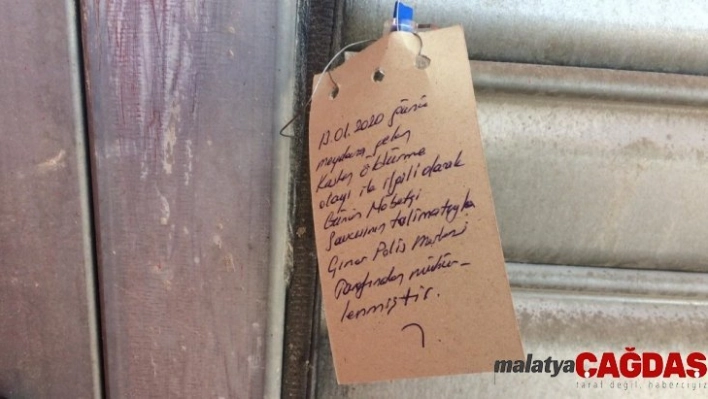 13.01.2020 günü
meydana gelen
Kasten Öldürme
olayı ile ilgili olarak
Günün Nöbetçi
Savcısının talimatıyla
Çınar Polis Merkezi
Tarafından mühür-
lenmiştir.
malatyaÇAĞDAŞ
taraf değil, haberciyiz